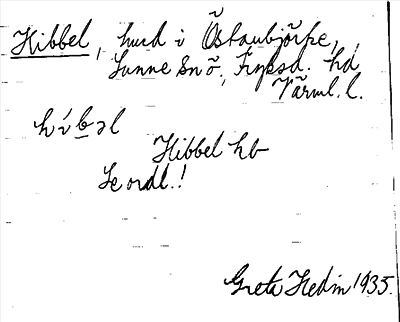 Hibbel, husd i Östanbjörke,
Sunne sn ö., Fryksd. hd
Värml. l.
hibəl
Hibbel hb
Se ordl.!
Greta Hedin 1935.